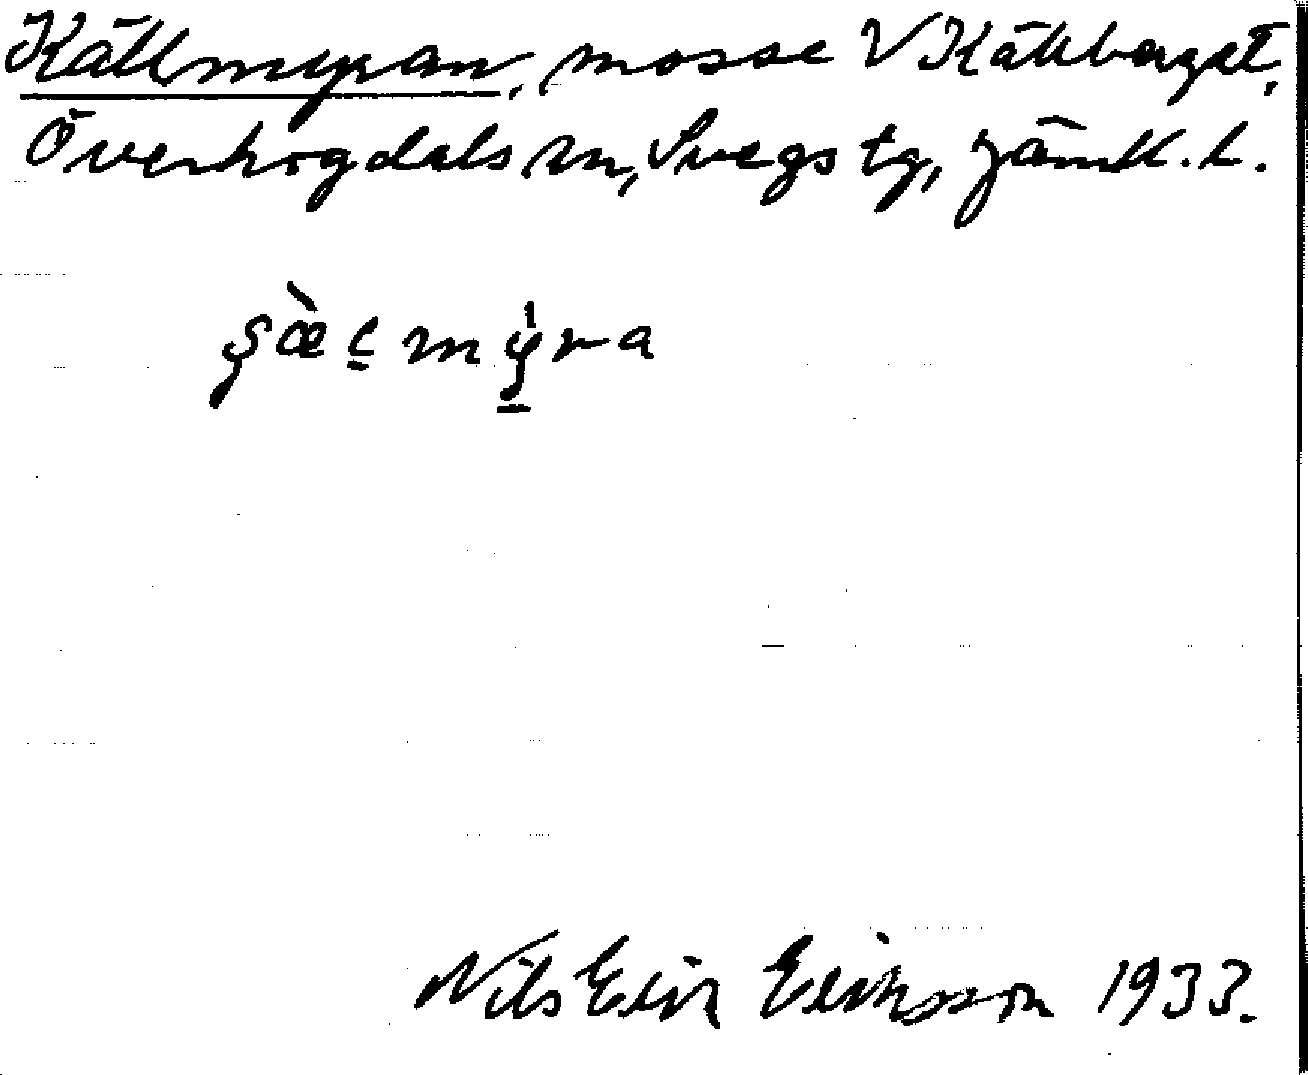 Källmyran, mosse V Källberget,
Överhogdals sn, Svegs tg, Jämtl. l.
Nils Eric Ericsson 1933.